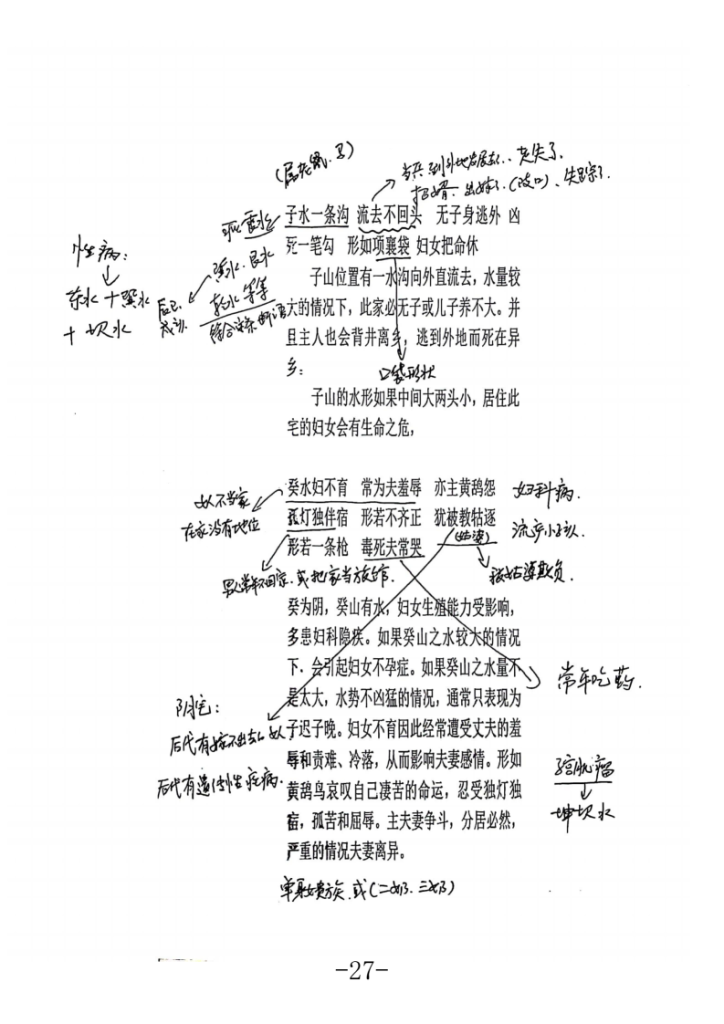 子水一条沟 流去不回头 无子身逃外 凶
死一笔勾 形如项襄袋 妇女把命休
性病：
子山位置有一水沟向外直流去，水量较
大的情况下，此家必无子或儿子养不大。并
且主人也会背井离乡，逃到外地而死在异
乡：
十坎水
口袋形状
子山的水形如果中间大两头小，居住此
宅的妇女会有生命之危，
癸水妇不育 常为夫羞辱 亦主黄鹄怨
妇科病.
女人不当家
孤灯独伴宿 形若不齐正 犹被教牯逐
在家没有地位
流产小孩
(姑婆)
形若一条枪 毒死夫常哭
男人常年不回家.或把家当旅馆.
被姑婆欺负.
癸为阴，癸山有水，妇女生殖能力受影响，
多患妇科隐疾。如果癸山之水较大的情况
下．会引起妇女不孕症。如果癸山之水量不
是太大，水势不凶猛的情况，通常只表现为
常年吃药.
阴宅：
子迟子晚。妇女不育因此经常遭受丈夫的羞
后代有嫁不出去的女人
辱和责难、冷落，从而影响夫妻感情。形如
后代有遗传性疾病.
黄鹄鸟哀叹自己凄苦的命运，忍受独灯独
子宫肌瘤
宿，孤苦和屈辱。主夫妻争斗，分居必然，
坤坎水
严重的情况夫妻离异。
单身贵族.或(二奶.三奶)
-27-